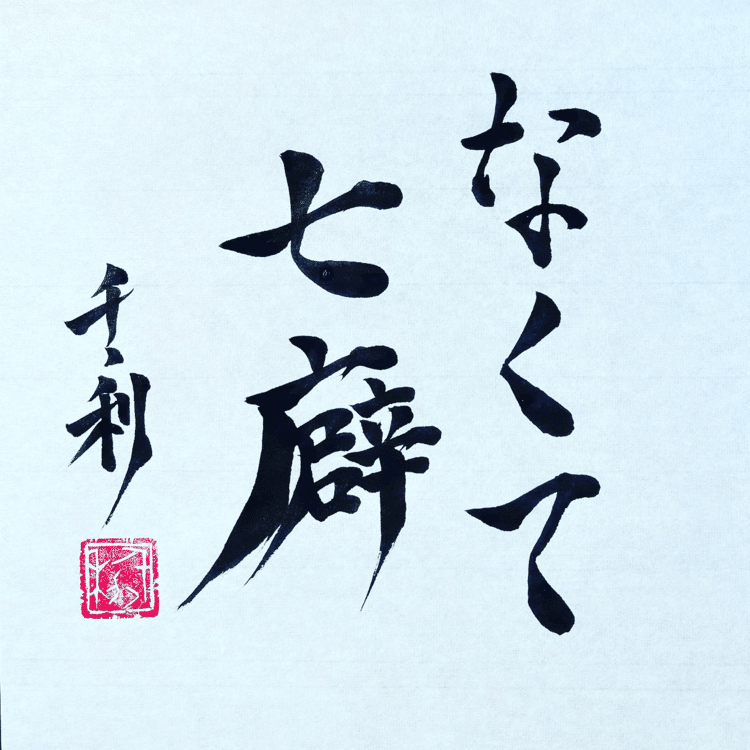 なくて
七癖
千利